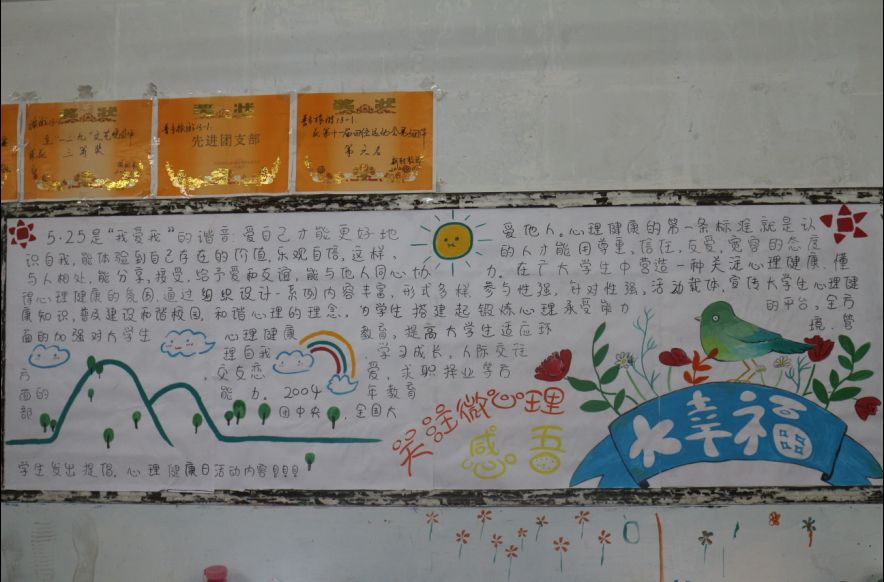 奖状
三等奖
奖状
先进团支部
奖状
第六名
5·25是“我爱我”的谐音:爱自己才能更好地爱他人。心理健康的第一条标准就是认
识自我,能体验到自己存在的价值,乐观自信,这样的人才能用尊重,信任,友爱,宽容的态度
与人相处,能分享,接受,给予爱和友谊,能与他人同心协力。在广大学生中营造一种关注心理健康,懂
得心理健康的氛围.通过组织设计一系列内容丰富,形式多样.参与性强,针对性强,活动载体,宣传大学生心理健
康知识,普及建设和谐校园,和谐心理的理念,为学生搭建起锻炼心理承受能力的平台,全方
面的加强对大学生心理健康教育,提高大学生适应环境,管
理自我,学习成长,人际交往
方,交友恋爱,求职择业学方
面的能力。2004年教育
部团中央,全国大
学生发出提倡,心理健康日活动内容!!!
关注微心理
感吾
小幸福